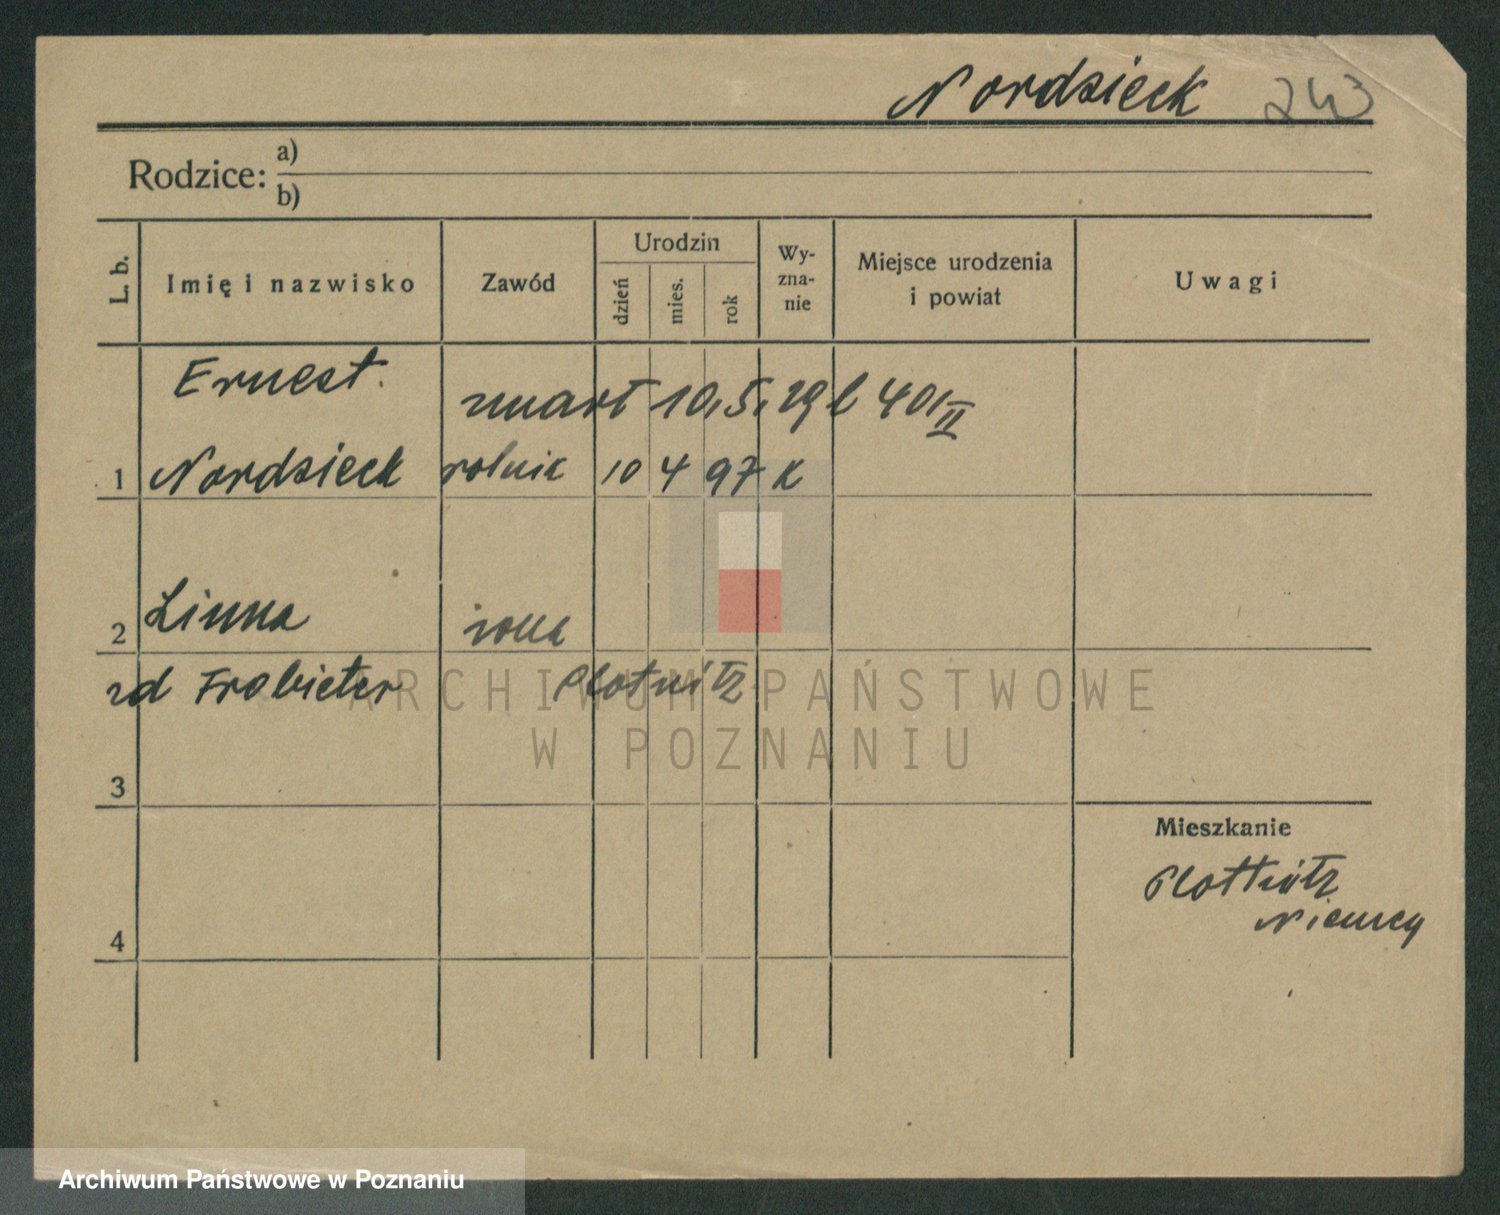 Nordsieck 243
Rodzice: a)
b)
L. b.
Imię i nazwisko
Zawód
Urodzin
dzień
mies.
rok
Wy-
zna-
nie
Miejsce urodzenia
i powiat
Uwagi
Ernest
zmarł 10.5.29 l 40/II
1 Nordsieck rolnik 10 4 97 K
2 Linna żona
zd Frobieter Plotnitz
ARCHIWUM PAŃSTWOWE
W POZNANIU
3
Mieszkanie
Plottnitz
Niemcy
4
Archiwum Państwowe w Poznaniu